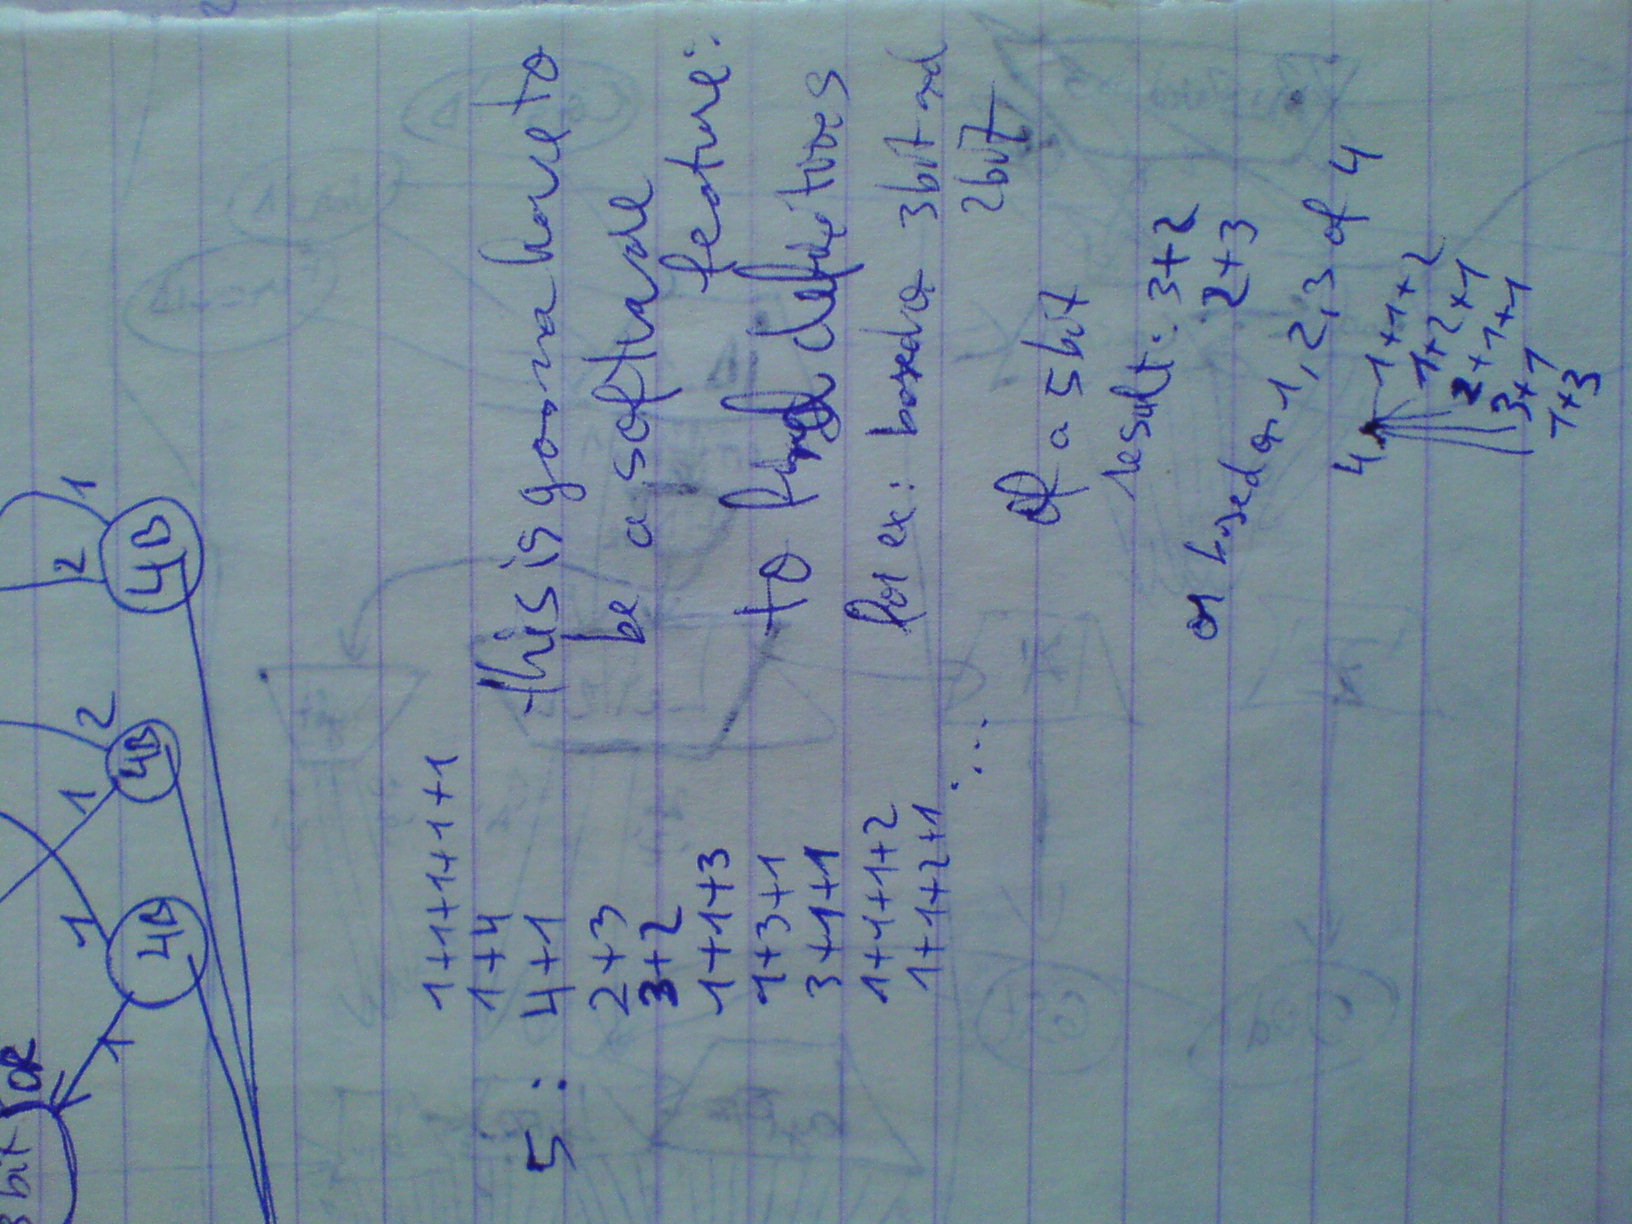 3 bit
OR
1
4B
1
2
4B
2
1
4B
1
5 :
1+1+1+1+1
1+4
4+1
2+3
3+2
1+1+3
1+3+1
3+1+1
1+1+1+2
1+1+2+1
...
this is gonna have to
be a software
feature:
to find definitions
for ex: based on 3bit and
2bit
of a 5 bit
result: 3+2
2+3
or based on 1,2,3 of 4
4
1+1+2
1+2+1
2+1+1
3+1
1+3